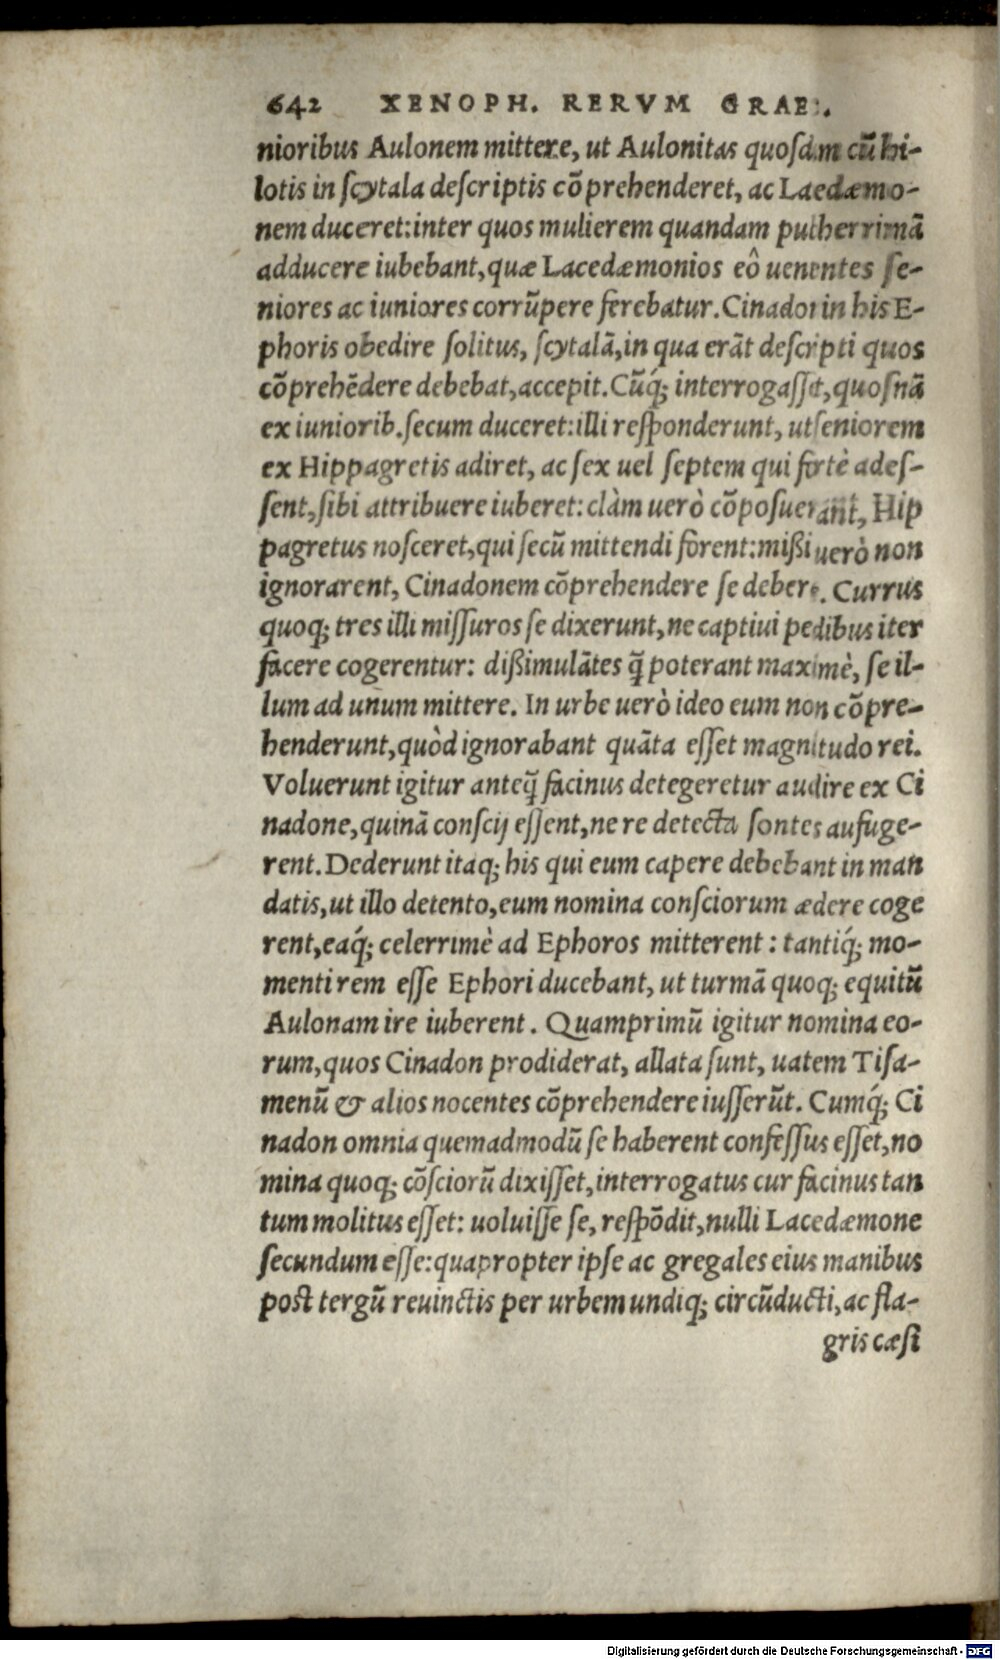 642 XENOPH. RERVM GRAEC.
nioribus Aulonem mittere, ut Aulonitas quosdam cū hi-
lotis in scytala descriptis cōprehenderet, ac Laedæmo-
nem duceret: inter quos mulierem quandam pulherrimā
adducere iubebant, quæ Lacedæmonios eô uenientes se-
niores ac iuniores corrūpere ferebatur. Cinadon in his E-
phoris obedire solitus, scytalā, in qua erāt descripti quos
cōprehēdere debebat, accepit. Cūq́; interrogasset, quosnā
ex iuniorib. secum duceret: illi responderunt, ut seniorem
ex Hippagretis adiret, ac sex uel septem qui fortè ades-
sent, sibi attribuere iuberet: clàm uerò cōposuerant, Hip
pagretus nosceret, qui secū mittendi forent: mißi uerò non
ignorarent, Cinadonem cōprehendere se debere. Currus
quoq; tres illi missuros se dixerunt, ne captiui pedibus iter
facere cogerentur: dißimulātes q̄ poterant maximè, se il-
lum ad unum mittere. In urbe uerò ideo eum non cōpre-
henderunt, quòd ignorabant quāta esset magnitudo rei.
Voluerunt igitur anteq̄ facinus detegeretur audire ex Ci
nadone, quinā conscij essent, ne re detecta sontes aufuge-
rent. Dederunt itaq; his qui eum capere debebant in man
datis, ut illo detento, eum nomina consciorum ædere coge
rent, eaq́; celerrimè ad Ephoros mitterent: tantiq́; mo-
menti rem esse Ephori ducebant, ut turmā quoq; equitū
Aulonam ire iuberent. Quamprimū igitur nomina eo-
rum, quos Cinadon prodiderat, allata sunt, uatem Tisa-
menū & alios nocentes cōprehendere iusserūt. Cumq́; Ci
nadon omnia quemadmodū se haberent confessus esset, no
mina quoq; cōsciorū dixisset, interrogatus cur facinus tan
tum molitus esset: uoluisse se, respōdit, nulli Lacedæmone
secundum esse: quapropter ipse ac gregales eius manibus
post tergū reuinctis per urbem undiq; circūducti, ac fla-
gris cæsi
Digitalisierung gefördert durch die Deutsche Forschungsgemeinschaft - DFG